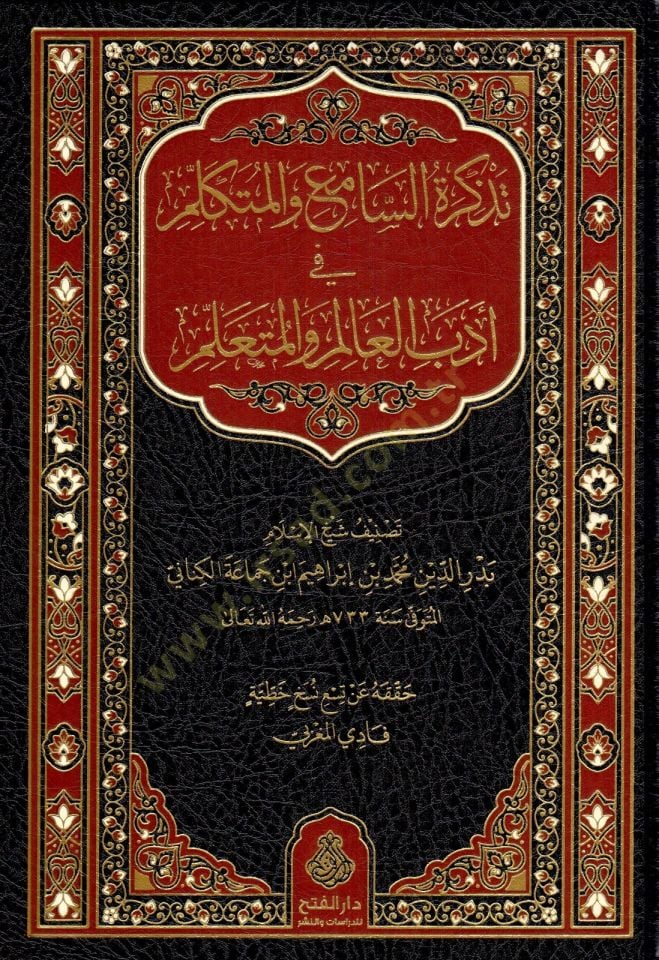 تَذْكِرَةُ السَّامِعِ وَالمُتَكَلِّمِ
في
أَدَبِ العَالِمِ وَالمُتَعَلِّمِ
تَصْنِيفُ شَيْخِ الإِسْلَامِ
بَدْرِ الدِّينِ مُحَمَّدِ بْنِ إِبْرَاهِيمَ ابْنِ جَمَاعَةَ الكِنَانِيِّ
المُتَوَفَّى سَنَةَ ٧٣٣هـ رَحِمَهُ اللهُ تَعَالَى
حَقَّقَهُ عَنْ تِسْعِ نُسَخٍ خَطِّيَّةٍ
فَادِي المَغْرِبِي
دار الفتح
للدراسات والنشر